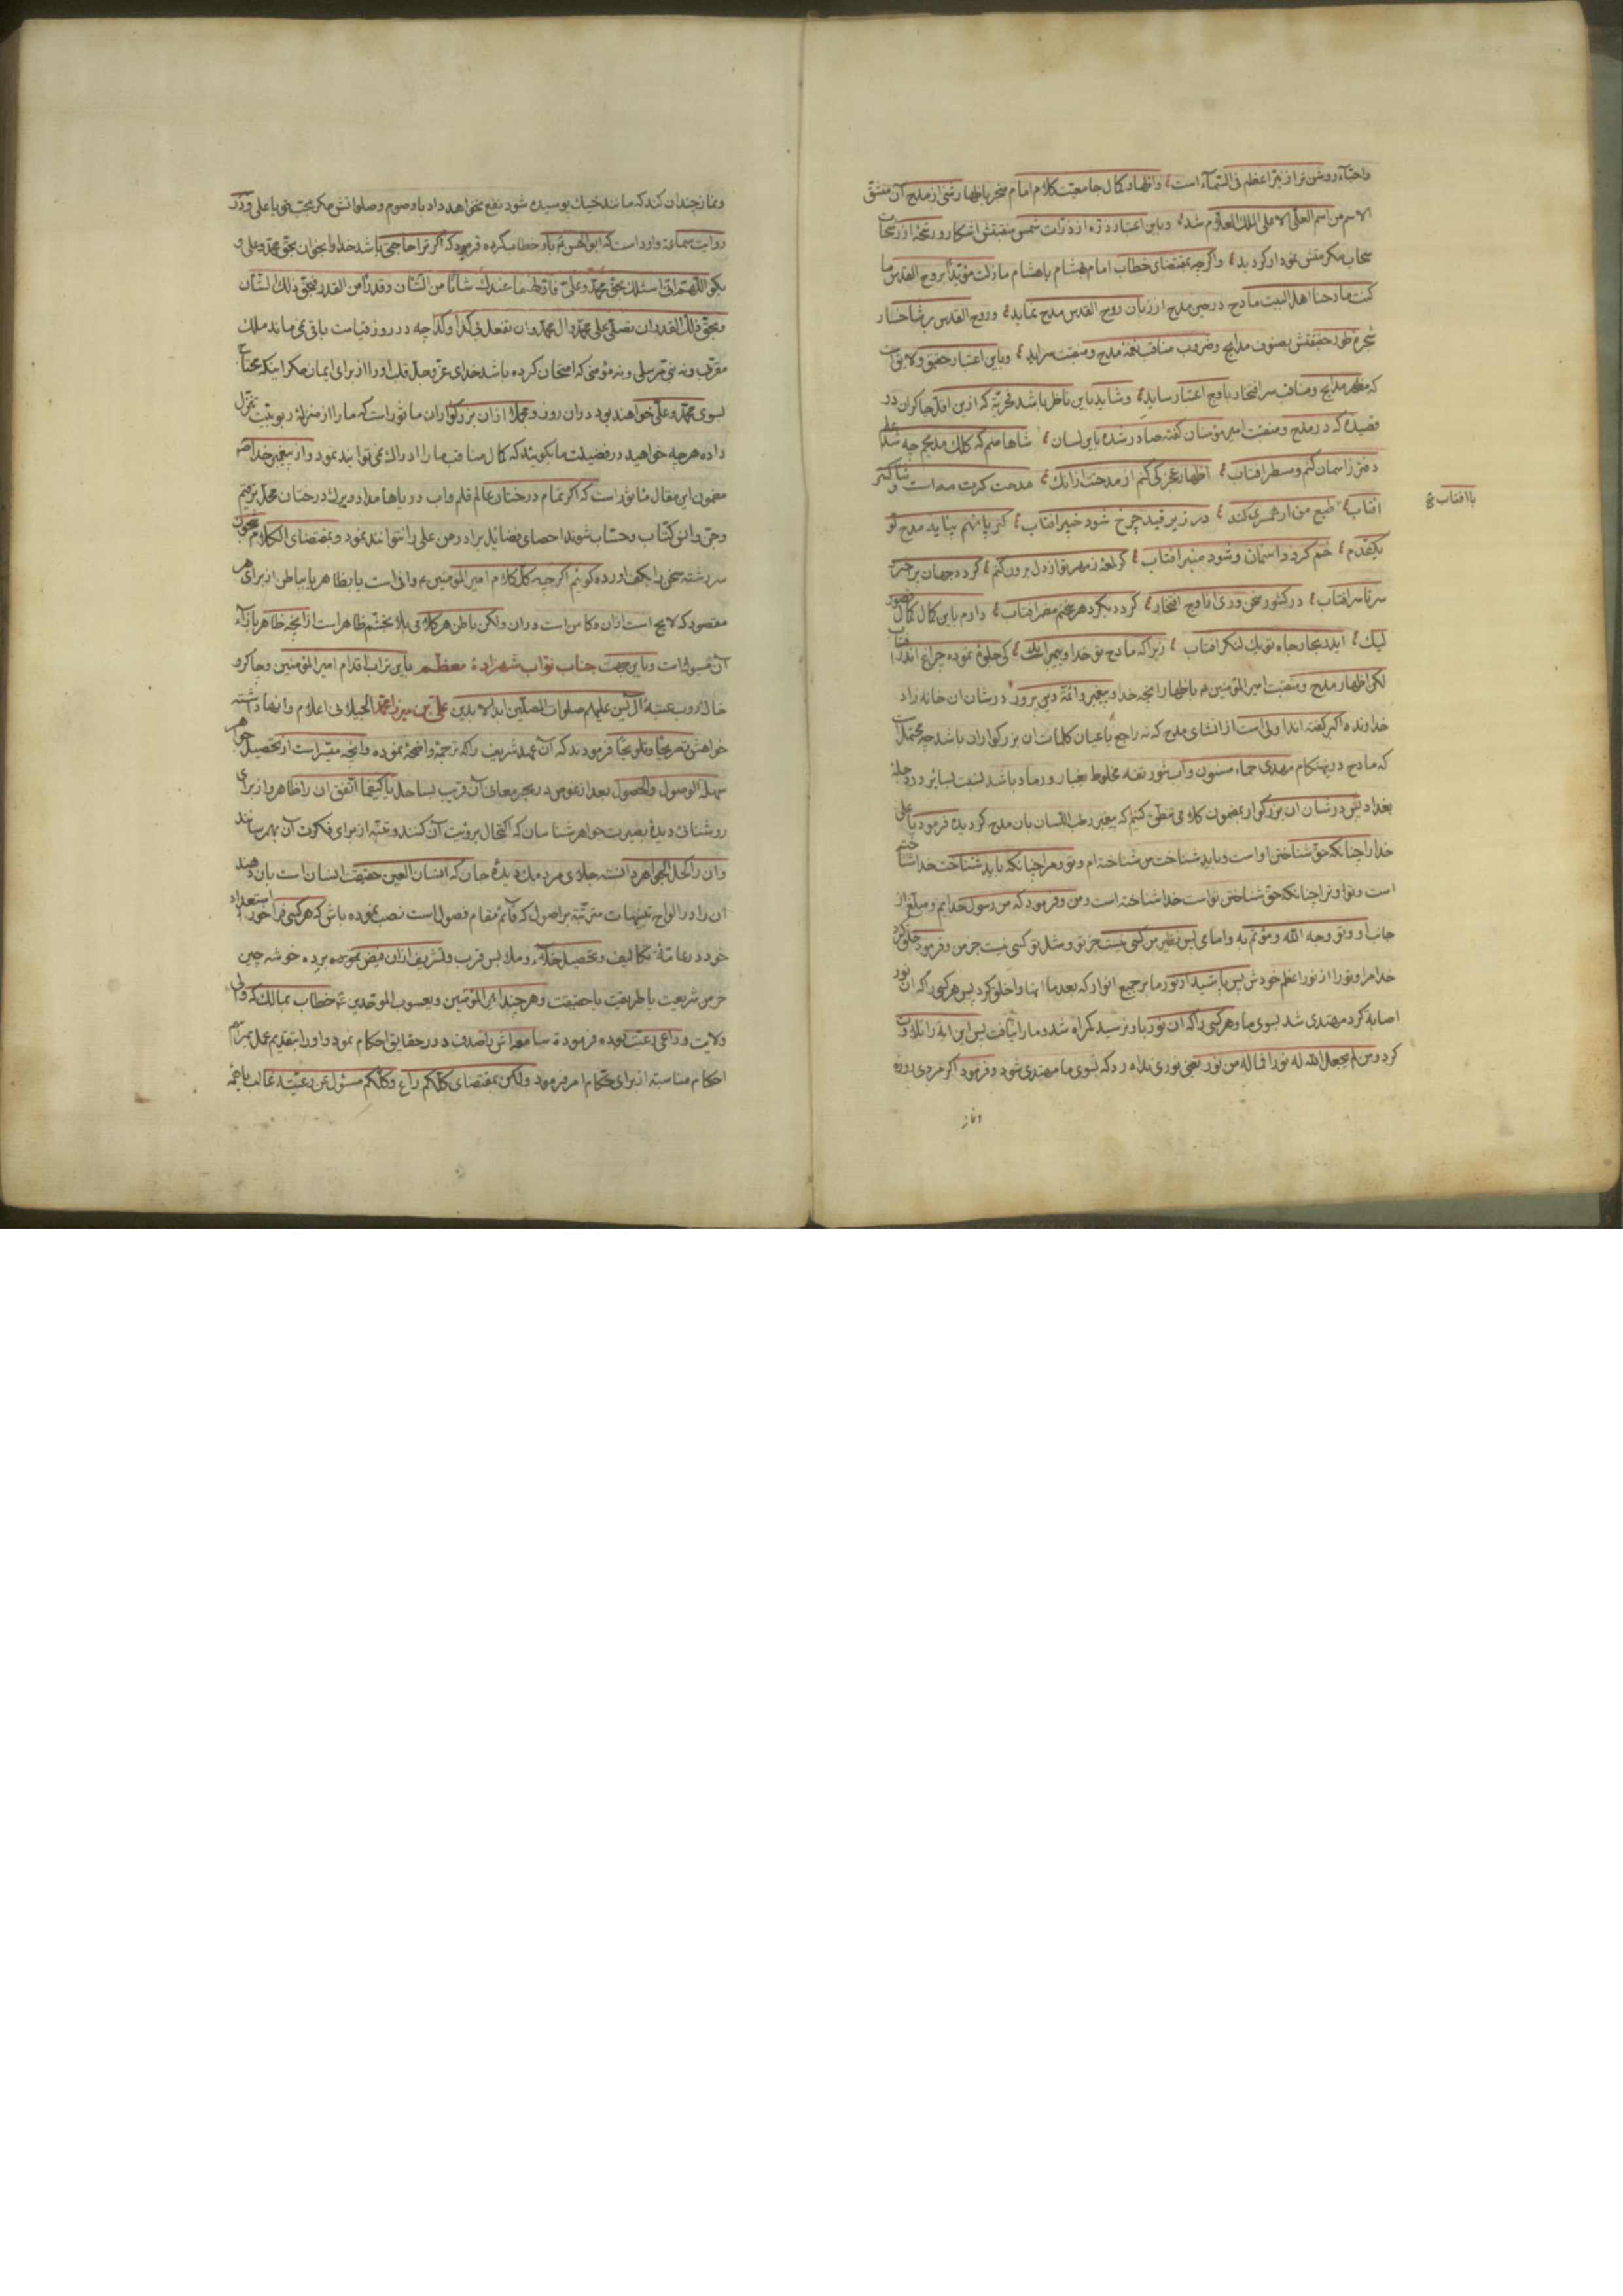 واحبّاء روشن تر از نیّر اعظم فی السّماء است و اظهار کمال جامعیّت کلام امام منجر باظهار رتبتی از مدح آن مشتقّ
الاسم من اسم العلیّ الاعلی الملک العلّام شد و باین اعتبار ذرّه از ذرّات شمس منقبتش اشکار و رشحه از رشحات
سحاب مکرمتش نمودار کردید و اگرچه بمقتضای خطاب امام بهشام یا هشام مازلت مؤیّدًا بروح القدس ما
مادحنا اهل البیت مادح در حین مدح از زبان روح القدس مدح نماید و روح القدس بر شاخسار
شجره طور حقیقتش بصنوف مدایح و ضروب مناقب نغمه مدح و منقبت سراید و باین اعتبار حقیق ولایق است
که مظهر مدایح و مناقب سر افتخار باوج اعتبار ساید و شاید باین ناظر باشد که ازین اقلّ چاکران در
قصیده که در مدح و منقبت امیر مؤمنان گفته صادر شده باین لسان شاها منم که کلک مدیحم چه شد
دفتر ز اسمان کنم و مسطر افتاب اظهار عجز کی کنم از مدحتت ازانک مدحت کرت مه است و ثناکتر
افتاب طبع من ار همسری کند در زیر قید چرخ شود خیر افتاب کر پا نهم بپایه مدح تو
با افتاب
یکقدم خم کردد اسمان و شود منبر افتاب کر لمعه ز مهر تو از دل برون کنم کردد جهان بر
سرتاسر افتاب در کشور سخنوری از اوج افتخار کردد بکرد هر سخنم مضمر افتاب دارم باین کمال کمال قصور
لیک ای در بحار جاه تو یک لنکر افتاب زیرا که مادح تو خدا و پیمبر کی جلوه نموده چراغ اندر افتاب
لکن اظهار مدح و منقبت امیر المؤمنین باظهار انچه خدا و پیغمبر و ائمّه دین پرور در شان ان خانه زاد
خداوند اکبر گفته اند اولی است از انشای مدح که نه راجع باعیان کلمات ان بزرگواران باشد چه محتمل است
که مادح درینهنکام مهدی حماء مسنون و آب شور تفه مخلوط بغبار و رماد باشد بنسبت بسائر در دجله
بغداد پس در شان ان بزرگوار بمضمون کلامی منطق کنیم که پیغمبر رطب اللّسان بان مدح کردیده فرمود یا علی
خدا را چنانکه حقّ شناختن او است و باید شناخت من شناخته ام و تو و مرا چنانکه باید شناخت خدا شناخته
است و تو و ترا چنانکه حقّ شناختن تو است خدا شناخته است و من و فرمود که من رسول خدایم و مبلّغ از
جانب او و تو وجه الله و مؤتمّ به و امامی پس نظیر من کسی نیست جز تو و مثل تو کسی نیست جز من و فرمود خلق کرد
خدا مرا و تو را از نور اعظم خودش پس پاشید از نور ما بر جمیع انوار که بعد ما انها را خلق کرد پس هر کس را که ان نور
اصابه کرد مهتدی شد بسوی ما و هر کسی را که ان نور باو نرسید کمراه شد و ما را نیافت پس این ایه را تلاوت
کرد و من لم یجعل الله له نورا فما له من نور یعنی نوری نداد که بسوی ما مهتدی شود و فرمود اگر مردی روزه
و نماز
و نماز چندان کند که مانند خیک پوسیده شود نفع نخواهد داد باو صوم و صلواتش مکر بمحبّت تو یا علی و در
روایت سماعه وارد است که ابو الحسن باو خطاب کرده فرمود که اگر ترا حاجتی باشد خدا را بخوان بحقّ محمّد و علی و
بگو اللّهمّ انّی اسئلک بحقّ محمّد و علیّ فانّ لهما عندک شأنًا من الشّأن و قدرًا من القدر فبحقّ ذلک الشّان
و بحقّ ذلک القدر ان تصلّی علی محمّد و ال محمّد و ان تفعل بی کذا و کذا چه در روز قیامت باقی نمی ماند ملک
مقرّب و نه نبیّ مرسلی و نه مؤمنی که امتحان کرده باشد خدای عزّ و جلّ قلب او را از برای ایمان مکر اینکه محتاج
بسوی محمّد و علی خواهند بود در ان روز و مجملا از ان بزرگواران ماثور است که ما را از منزله ربوبیّت تنزّل
داده هر چه خواهید در فضیلت ما بگوئید که کمال مناقب ما را ادراک نمی توانید نمود و از پیغمبر خدا
مضمون این مقال ماثور است که اگر تمام درختان عالم قلم و اب دریاها مداد و برک درختان محلّ ترقیم
و جنّ و انس کتّاب و حسّاب شوند احصای فضایل برادر من علی را نتوانند نمود و بمقتضای الکلام
سر رشته سخن را بکف اورده کوئیم اگرچه کلّ کلام امیر المؤمنین وافی است یا بظاهر یا بباطن از برای هر
مقصود که لایح است از ان و کامن است در ان ولکن باطن هر کلامی بلا تجشّم ظاهر است از انچه ظاهر بازاء
آن مسوق است و باین جهت جناب نوّاب شهزاده معظّم باین تراب اقدام امیر المؤمنین و چاکر و
خاکروب عتبه آل یٰس علیهم صلوات المصلّین ابد الابدین علی بن میرزا محمّد الجیلانی اعلام و انها داشته
خواهش تصریحًا و تلویحًا فرمودند که آن عهد شریف را که ترجمه واضحه نموده و انچه میسّر است از تحصیل جواهر
سهلة الوصول و الحصول بعد از غوص در بحر معانی آن قریب بساحل یا کیفما اتّفق ان را ظاهر و از برای
روشنائی دیده بصیرت جواهر شناسان که اکتحال برؤیت آن کنند و تنبّه از برای فکرت آن بهم رسانند
و ان را کحل الجواهر دانسته جلای مردمک دیده جان که انسان العین حقیقت انسان است بان دهند
ان را در الواح تنبیهات مترتّبه بر اصول که قائم مقام فصول است نصب نموده باش که هر کسی فراخور استعداد
خود در رعایت تکالیف و تحصیل و ملابس قرب و تشریف ازان فیض نموده برده خوشه چین
خرمن شریعت یا طریقت یا حقیقت و هر چند امیر المؤمنین و یعسوب الموحّدین خطاب بمالک که والی
ولایت و راعی رعیّت بوده فرموده سامعه اش را صدف درر حقایق احکام نمود و او را بتقدیم عمل بمراسم
احکام مناسبه از برای حکّام امر فرمود ولکن بمقتضای کلّکم راع و کلّکم مسئول عن رعیّته غالب